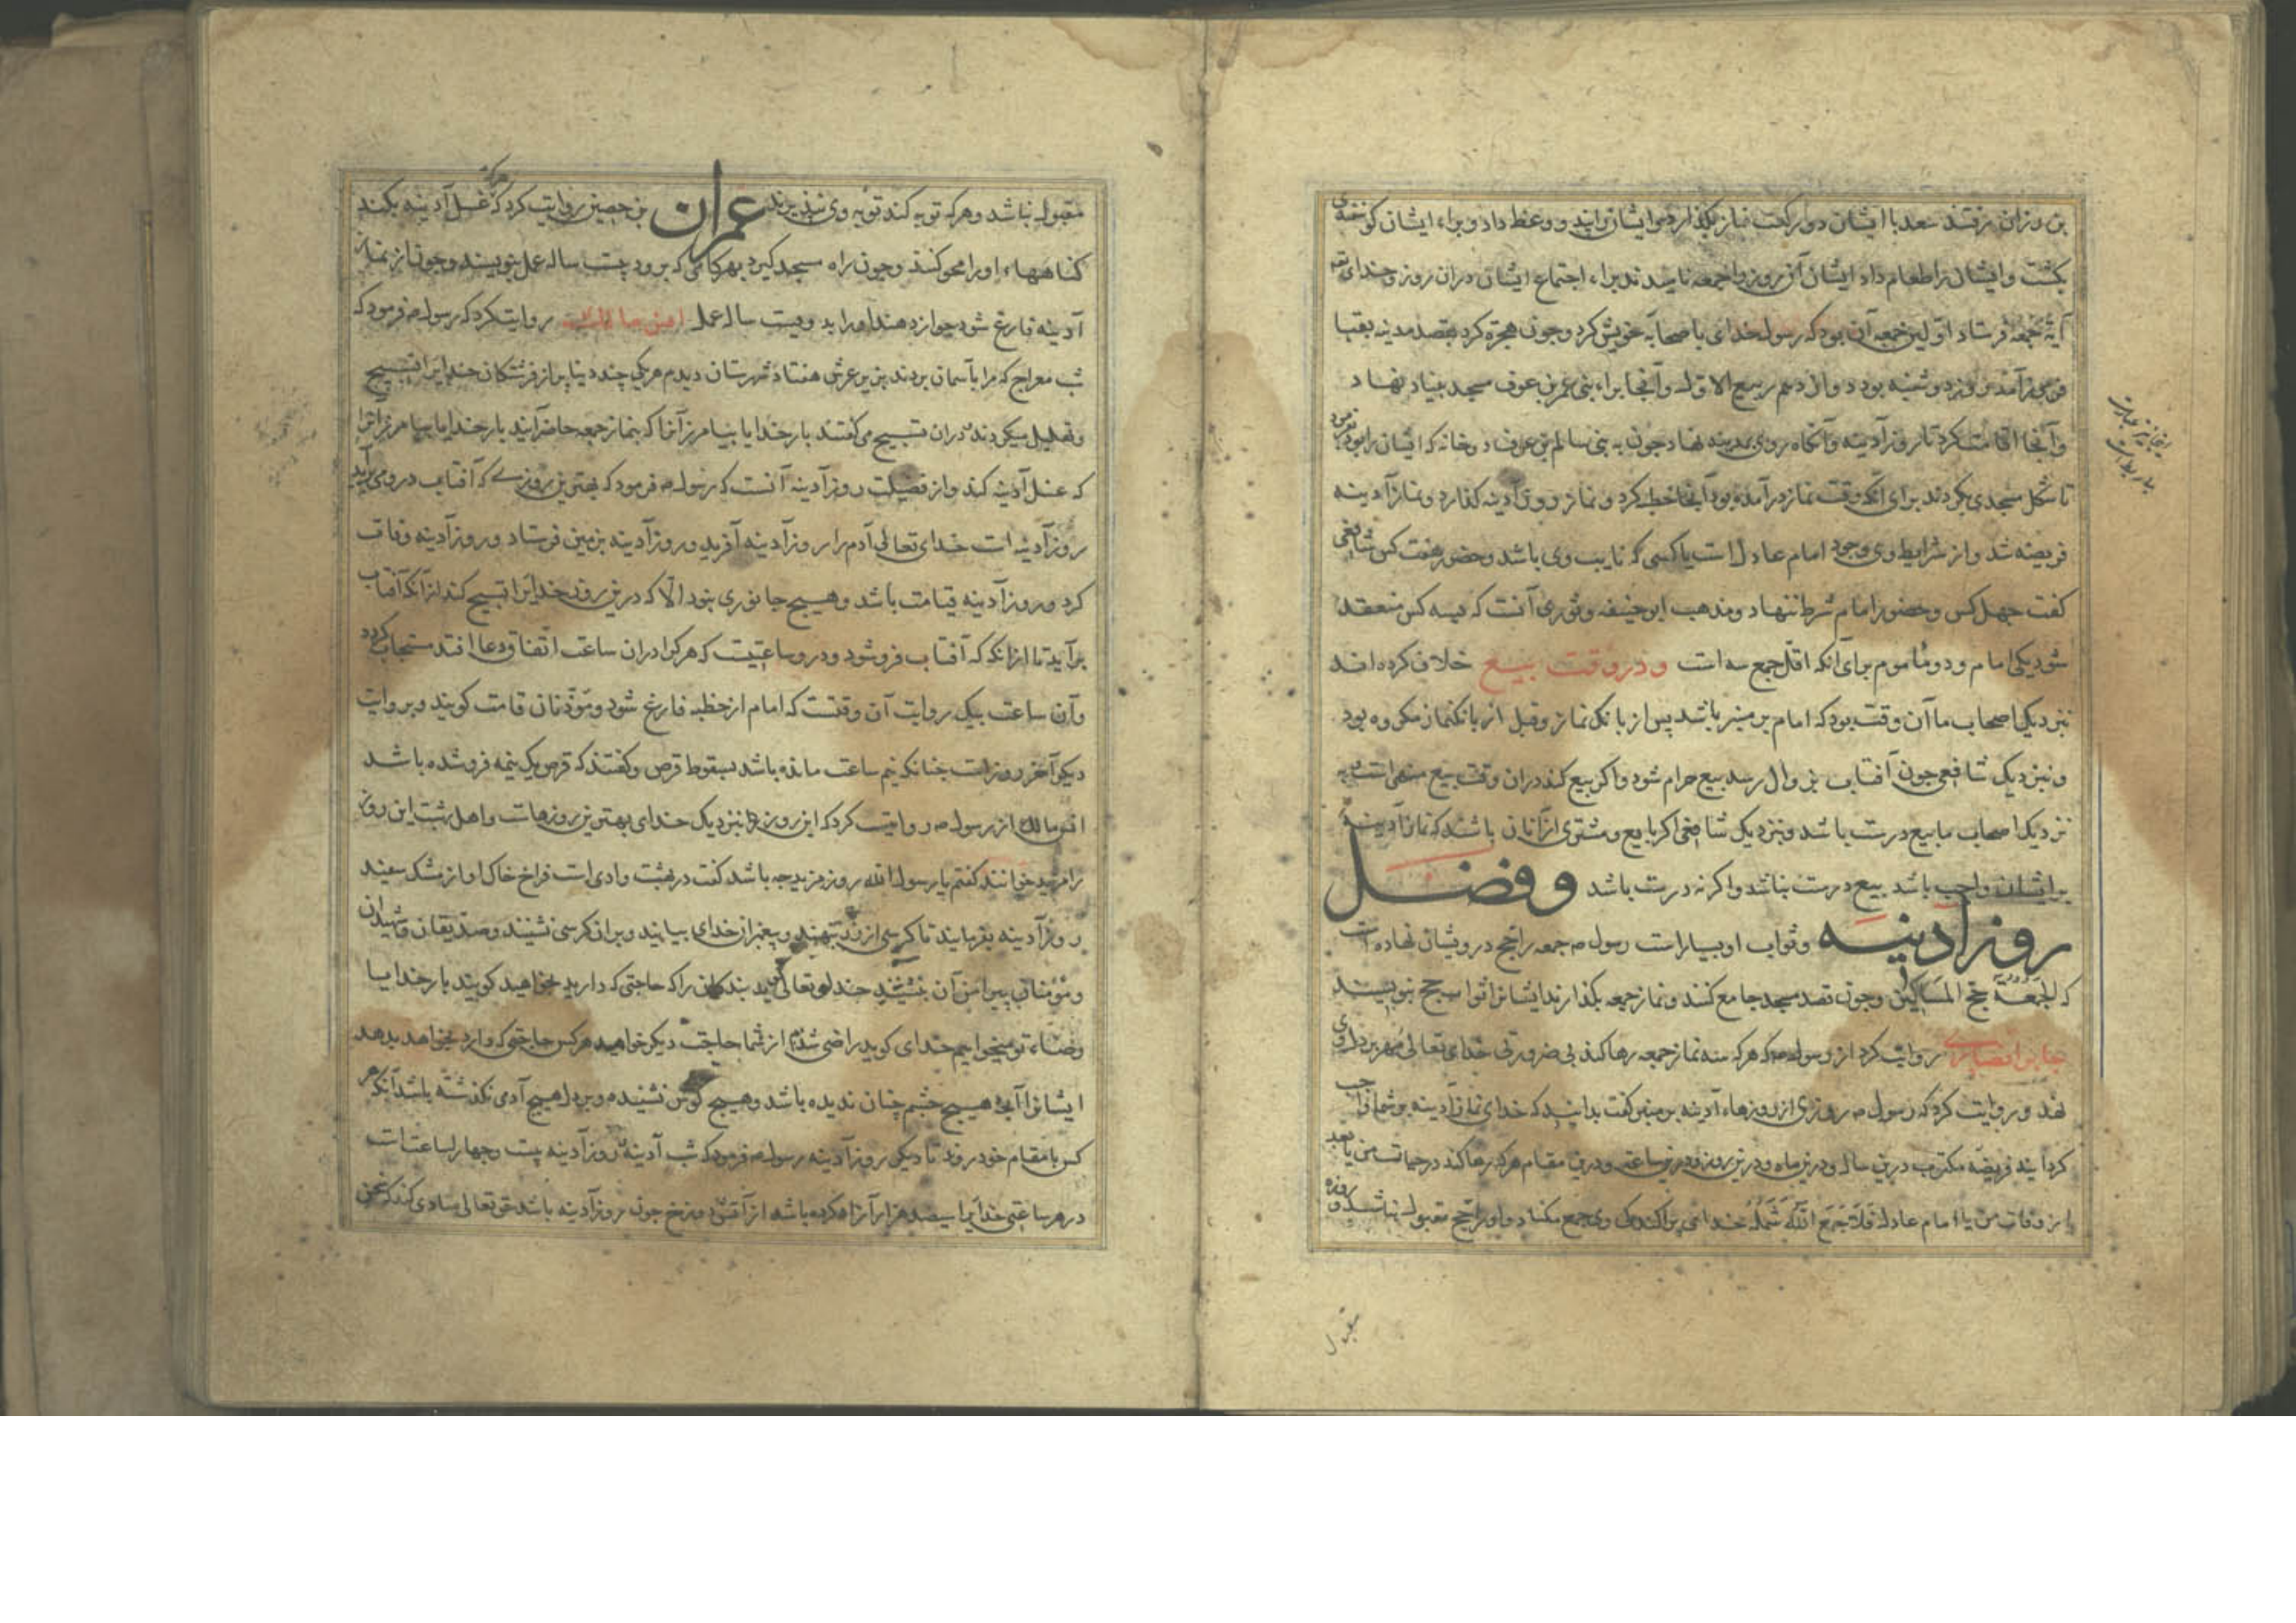 بن زراره رفتند سعد با ایشان دو رکعت نماز بگذارد و ایشانرا پند و وعظ داد و براء ایشان کوسفندی
بکشت و ایشان را طعام داد ایشان آن روز را جمعه نامیدند براء اجتماع ایشان دران روز و خدای تع
آیهٔ جمعه فرستاد اولین جمعه آن بود که رسول خدای با صحابهٔ خویش کرد و چون هجرة کرد بقصد مدینه بقبا
فرمی آمد روز دوشنبه بود دوازدهم ربیع الاول و آنجا براء بنی عمرو بن عوف مسجد بنیاد نهاد
و آنجا اقامت کرد تا روز آدینه و آنکاه روی بمدینه نهاد چون به بنی سالم بن عوف
تا شکل مسجدی بکردند برای آنکه وقت نماز درآمده بود آنجا خطبه کرد و نماز روز آدینه کذارد و نماز آدینه
فریضه شد و از شرایط وی وجود امام عادل است یا کسی که نایب وی باشد و حضور هفت کس شافعی
کفت چهل کس و حضور امام شرط ننهاد و مذهب ابو حنیفه و ثوری آنست که بسه کس منعقد
شود یکی امام و دو ماموم برای آنکه اقل جمع سه است و در وقت بیع خلاف کرده اند
نزدیک اصحاب ما آن وقت بود که امام بر منبر باشد پس از بانک نماز و قبل از بانک نماز مکروه بود
و نزدیک شافعی چون آفتاب بزوال رسد بیع حرام شود و اکر بیع کند دران وقت بیع منهی است به
نزدیک اصحاب ما بیع درست باشد و نزدیک شافعی اکر بایع و مشتری ازانان باشند که نماز آدینه
بر ایشان واجب باشد بیع درست نباشد و اکر نه درست باشد و فضل
روز آدینه و ثواب او بسیار است رسول ص جمعه را حج درویشان نهاده است
که الجمعة حج المساکین و چون قصد مسجد جامع کنند و نماز جمعه بکذارند ایشانرا ثواب حج بنویسند
جابر انصاری روایت کرد از رسول ص که هر که سه نماز جمعه رها کند بی ضرورتی خدای تعالی مهر بر دل وی
نهد و روایت کرد که رسول ص روزی از روزهاء آدینه بر منبر کفت بدانید که خدای نماز آدینه بر شما واجب
کردانید فریضه مکتوب درین سال و درین ماه و درین روز و درین ساعت و درین مقام هر که رها کند در حیات من یا بعد
از وفات من با امام عادل فلا جمع الله شمله خدای پراکندکی وی جمع مکناد و او را حج مقبول نباشد و روزه
مقبول
مقبول نباشد و هر که توبه کند توبه وی نپذیرند عمران بن حصین روایت کرد که هر که غسل آدینه بکند
کناههاء او را محو کنند و چون راه مسجد کیرد بهر کامی که برود بیست ساله عمل بنویسند و چون از نماز
آدینه فارغ شود جواز دهند او را بدویست ساله عمل انس مالک روایت کرد که رسول ص فرمود که
شب معراج که مرا بآسمان بردند بزیر عرش هفتاد شهرستان دیدم هر یکی چند دنیا پر از فرشتکان خدایرا تسبیح
و تهلیل میکردند و دران تسبیح می کفتند بار خدایا بیامرز آنرا که بنماز جمعه حاضر آیند بار خدایا بیامرز آنرا
که غسل آدینه کند و از فضیلت روز آدینه آنست که رسول ص فرمود که بهترین روزی که آفتاب درو می برآید
روز آدینه است خدای تعالی آدم را روز آدینه آفرید و روز آدینه بزمین فرستاد و روز آدینه وفات
کرد و روز آدینه قیامت باشد و هیچ جانوری نبود الا که درین روز خدایرا تسبیح کند از آنکه آفتاب
برآید تا ازانکه که آفتاب فرو شود و درو ساعتیست که هر کرا دران ساعت اتفاق دعا افتد مستجاب کردد
و آن ساعت بیک روایت آن وقتست که امام از خطبه فارغ شود و مؤذنان قامت کویند و بروایت
دیکر آخر روز است چنانکه نیم ساعت مانده باشد بسقوط قرص و کفتند که قرص یک نیمه فرو شده باشد
انس مالک از رسول ص روایت کرد که این روزها نزدیک خدای بهترین روزهاست و اهل بهشت این روز
را مزید خوانند کفتم یا رسول الله روز مزید چه باشد کفت در بهشت وادی است فراخ خاک او از مشک سفید
روز آدینه بفرمایند تا کرسی از زر بنهند و پیغمبران خدای بیایند و بران کرسی نشینند و صدیقان و شهیدان
و مؤمنان پیرامن آن بنشینند خدای تعالی کوید بندکان را که حاجتی که دارید بخواهید کویند بار خدایا
رضاء تو میخواهیم خدای کوید راضی شدم از شما حاجت دیکر خواهید هر کس حاجتی که دارد بخواهد بدهد
ایشانرا آنچ هیچ چشم چنان ندیده باشد و هیچ کوش نشنیده و بر دل هیچ آدمی نکذشته باشد آنکه هر
کس با مقام خود روند تا دیکر روز آدینه رسول ص فرمود که شب آدینه و روز آدینه بیست و چهار ساعتست
در هر ساعتی خدایرا سیصد هزار آزاد کرده باشد از آتش دوزخ چون روز آدینه باشد حق تعالی منادی کند که